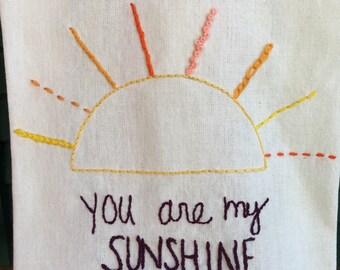 YOU are my
SUNSHINE